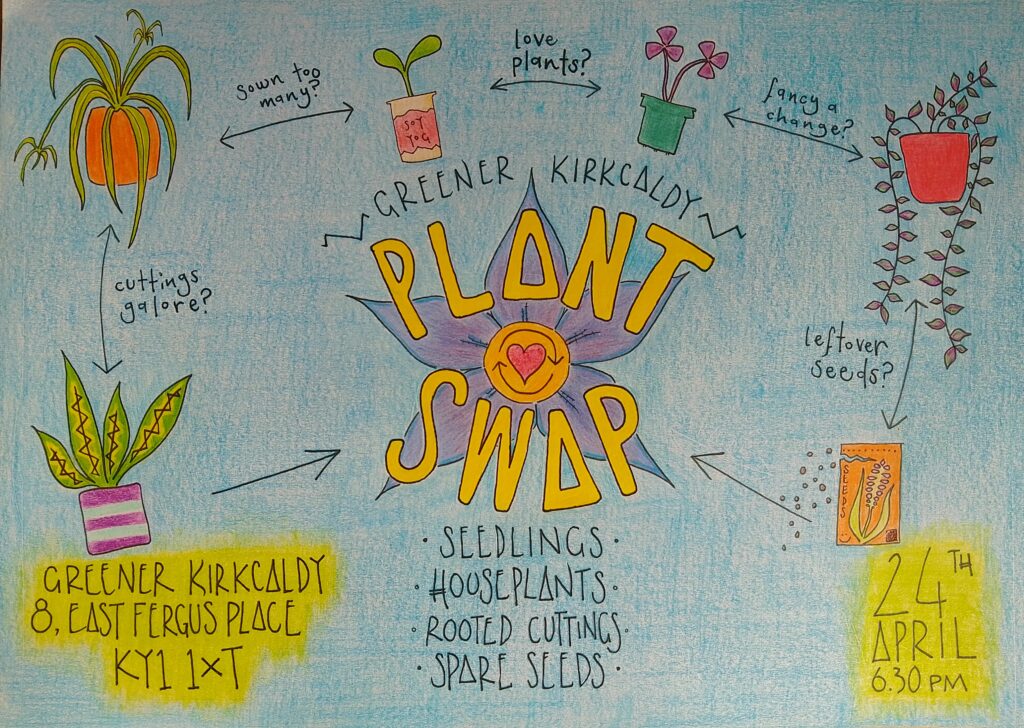 sown too
many?
love
plants?
fancy a
change?
SOY
YOG
GREENER KIRKCALDY
PLANT
SWAP
cuttings
galore?
leftover
seeds?
SEEDS
· SEEDLINGS ·
· HOUSEPLANTS ·
· ROOTED CUTTINGS ·
· SPARE SEEDS ·
GREENER KIRKCALDY
8, EAST FERGUS PLACE
KY1 1XT
24TH
APRIL
6.30 PM